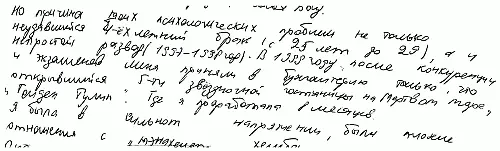 но причина моих психологических проблем не только
неудавшийся 4-ёх летний брак (с 25 лет до 29), а и
непростой развод (1997-1998 год). В 1998 году, после конкуренции
и экзаменов меня приняли в бухгалтерию только, что
открывшийся 5-ти звездночной гостиницы на Мёртвом море,
Где я доработала 8 месяцев.
Я была в сильном напряжении, были плохие
отношения с